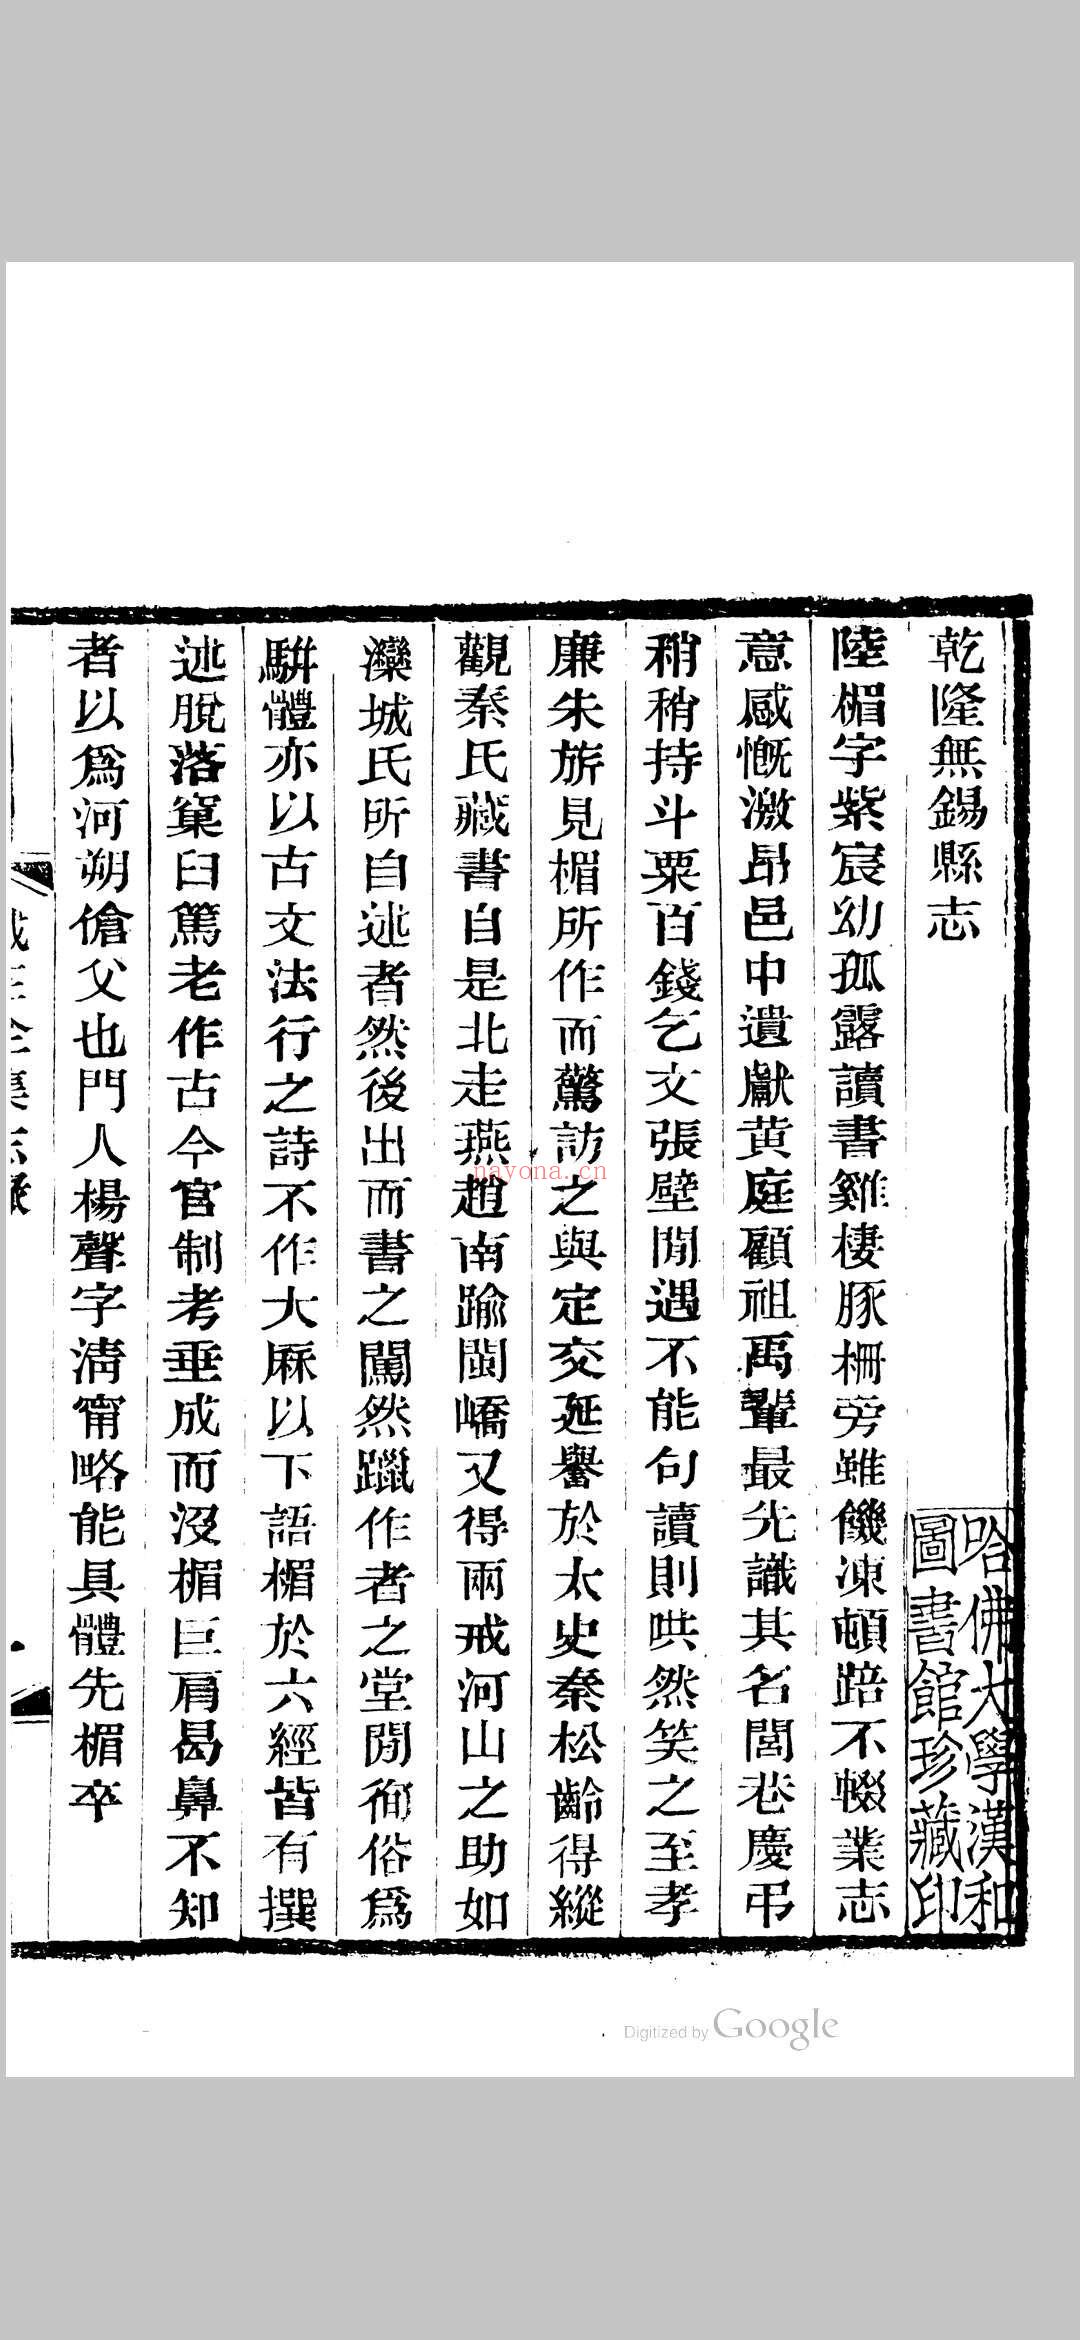 乾隆無錫縣志
哈佛大學漢和
圖書館珍藏印
陸楣字紫宸幼孤露讀書雞棲豚柵旁雖饑凍頓踣不輟業志
意感慨激昂邑中遺獻黃庭顧祖禹輩最先識其名閭巷慶弔
稍稍持斗粟百錢乞文張壁閒遇不能句讀則哄然笑之至孝
廉朱旂見楣所作而驚訪之與定交延譽於太史秦松齡得縱
觀秦氏藏書自是北走燕趙南踰閩嶠又得兩戒河山之助如
灤城氏所自述者然後出而書之闖然躐作者之堂閒徇俗為
駢體亦以古文法行之詩不作大厤以下語楣於六經皆有撰
述脫落窠臼篤老作古今官制考垂成而沒楣巨肩曷鼻不知
者以為河朔傖父也門人楊聲字淸甯略能具體先楣卒
nayona.cn
Digitized by Google